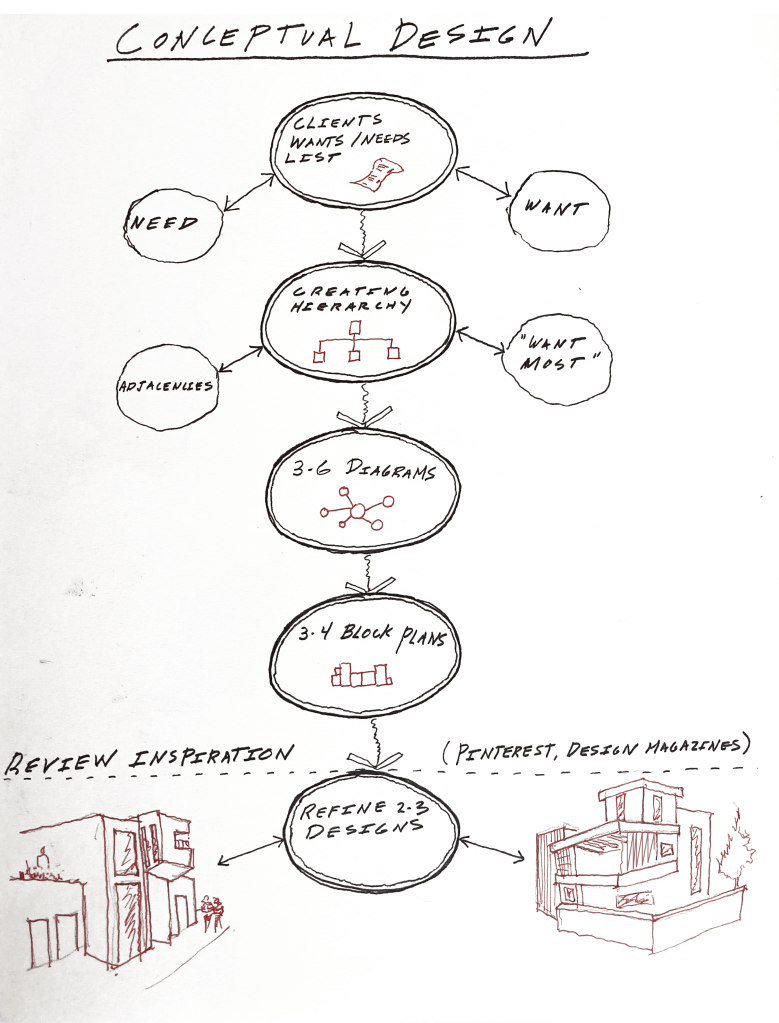 CONCEPTUAL DESIGN
CLIENTS
WANTS/NEEDS
LIST
NEED
WANT
CREATING
HIERARCHY
ADJACENCIES
"WANT
MOST"
3-6 DIAGRAMS
3-4 BLOCK PLANS
REVIEW INSPIRATION
(PINTEREST, DESIGN MAGAZINES)
REFINE 2-3
DESIGNS